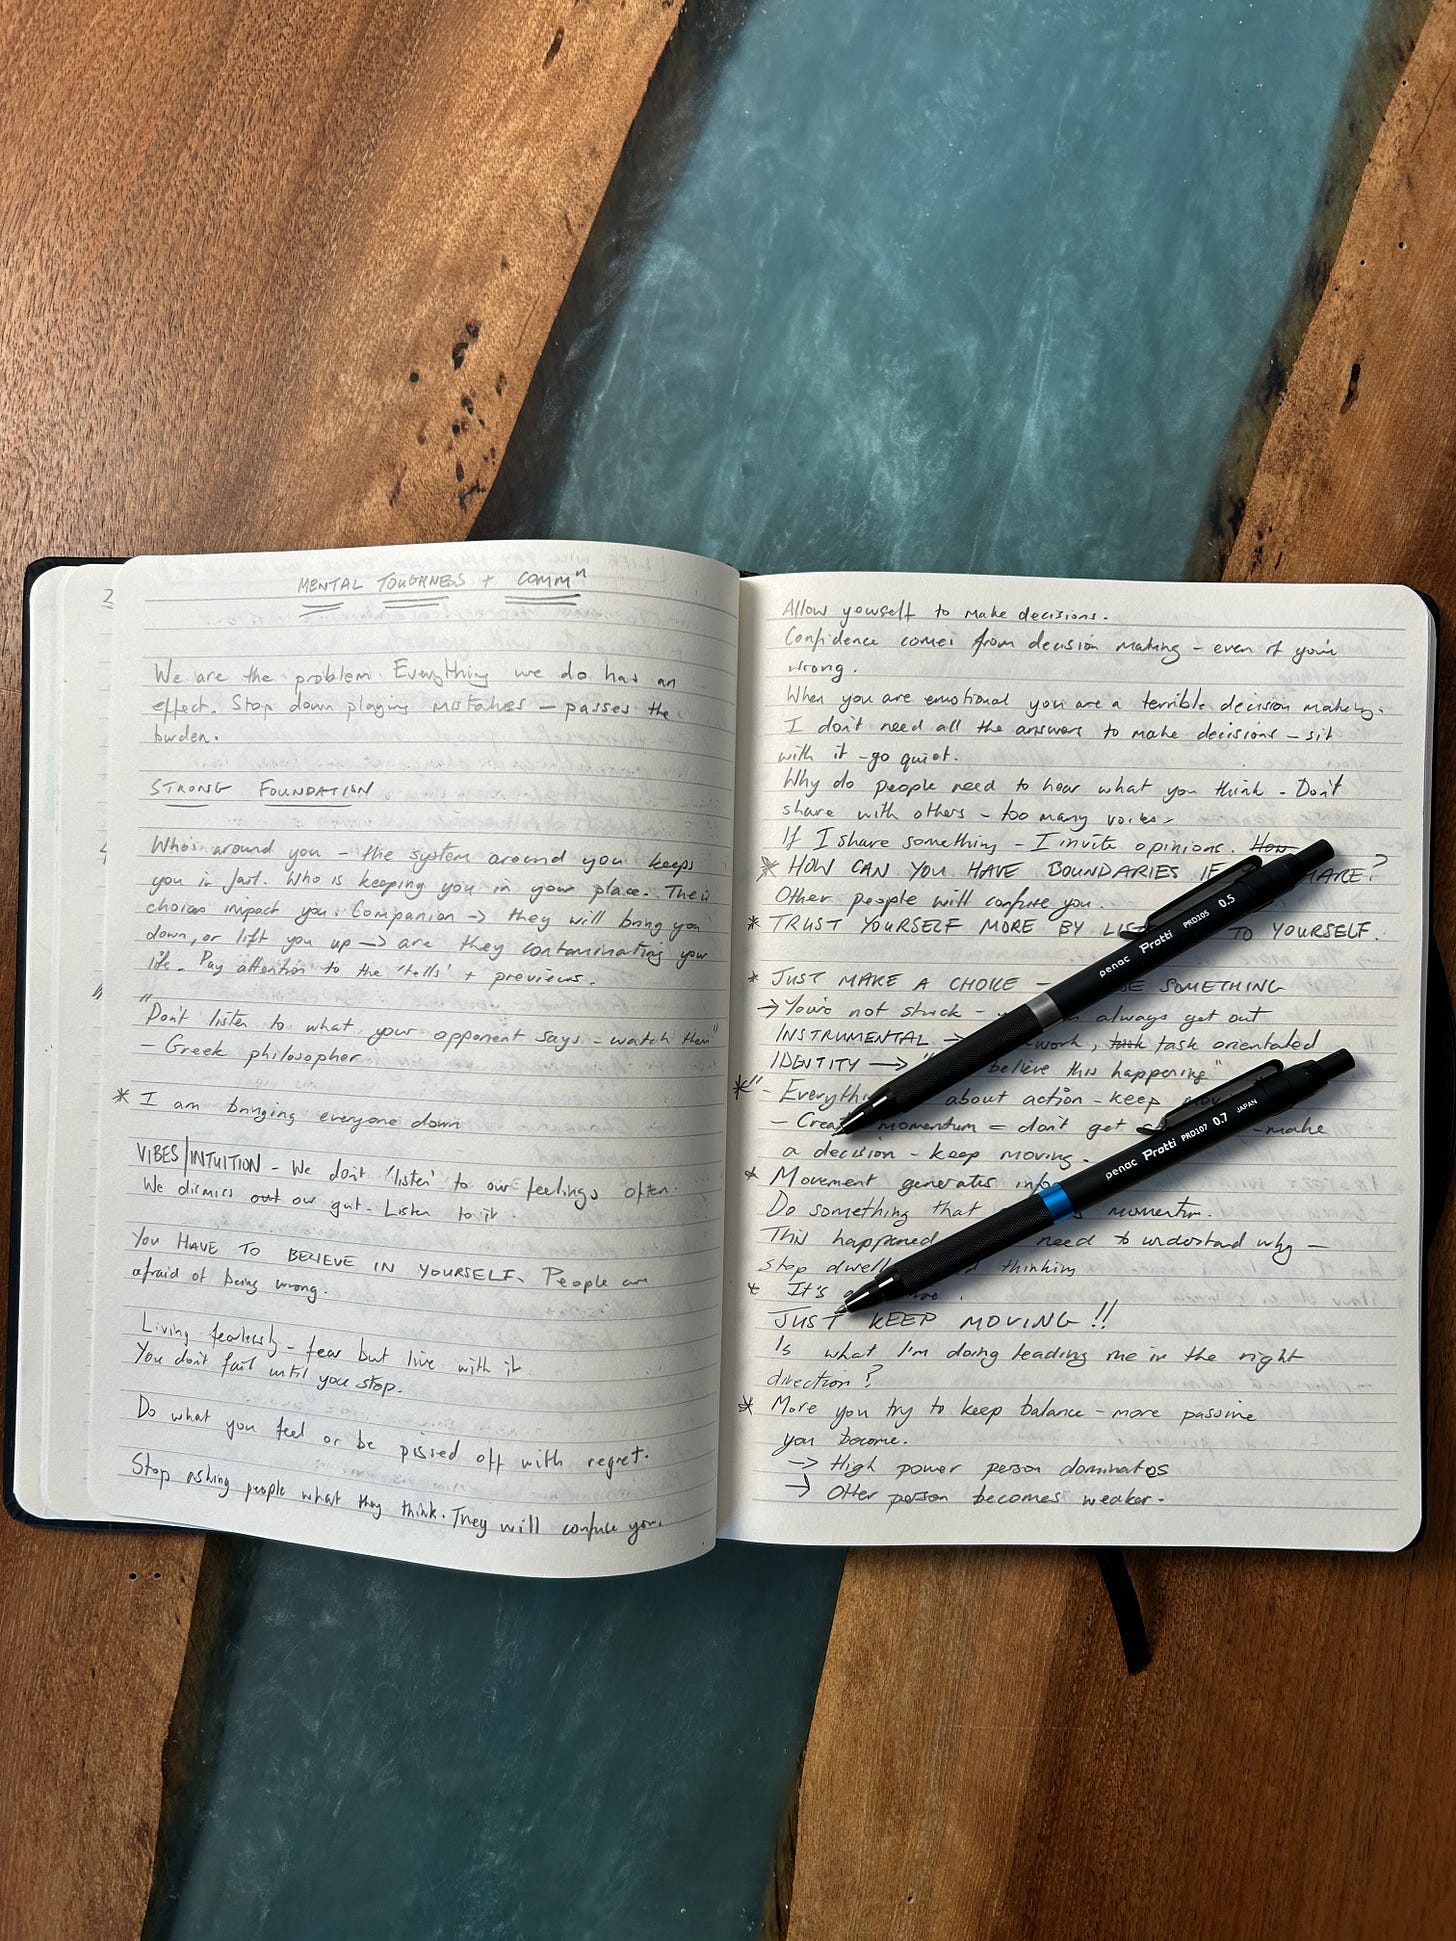 2
MENTAL TOUGHNESS + COMMⁿ
We are the problem. Everything we do has an
effect. Stop down playing mistakes – passes the
burden.
STRONG FOUNDATION
Who's around you – the system around you keeps
you in fast. Who is keeping you in your place. Their
choices impact you. Companion → they will bring you
down, or lift you up → are they contaminating your
life. Pay attention to the 'tells' + previews.
"Don't listen to what your opponent says – watch them"
– Greek philosopher
* I am bringing everyone down
VIBES/INTUITION – We don't 'listen' to our feelings often.
We dismiss out our gut. Listen to it.
YOU HAVE TO BELIEVE IN YOURSELF. People are
afraid of being wrong.
Living fearlessly – fear but live with it
You don't fail until you stop.
Do what you feel or be pissed off with regret.
Stop asking people what they think. They will confuse you.
Allow yourself to make decisions.
Confidence comes from decision making – even if you're
wrong.
When you are emotional you are a terrible decision making.
I don't need all the answers to make decisions – sit
with it – go quiet.
Why do people need to hear what you think – Don't
share with others – too many voices
If I share something – I invite opinions. How
* HOW CAN YOU HAVE BOUNDARIES IF SHARE?
Other people will confuse you.
* TRUST YOURSELF MORE BY TO YOURSELF.
* JUST MAKE A CHOICE – SOMETHING
→ You're not stuck – always get out
INSTRUMENTAL → work, task task orientated
IDENTITY → " believe this happening"
*" – Everything about action – keep
– Create momentum = don't get – make
a decision – keep moving.
* Movement generates info
Do something that momentum.
This happened need to understand why –
stop thinking
* It's
JUST KEEP MOVING!!
Is what I'm doing leading me in the right
direction?
* More you try to keep balance – more passive
you become.
→ High power person dominates
→ Other person becomes weaker.
penac Protti PRD105 0.5
penac Protti PRD107 0.7 JAPAN